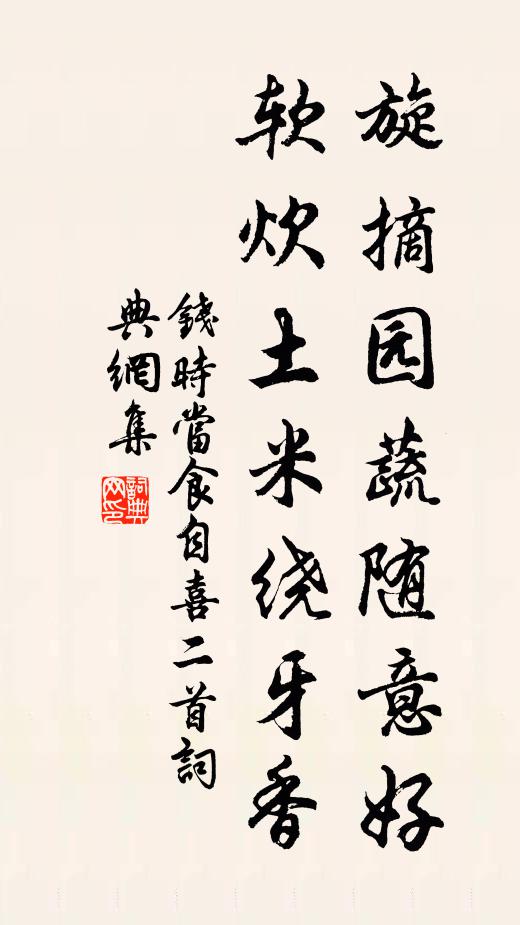 旋摘园蔬随意好
软炊土米绕牙香
錢時當食自喜二首詞
典網集
詞典
网印